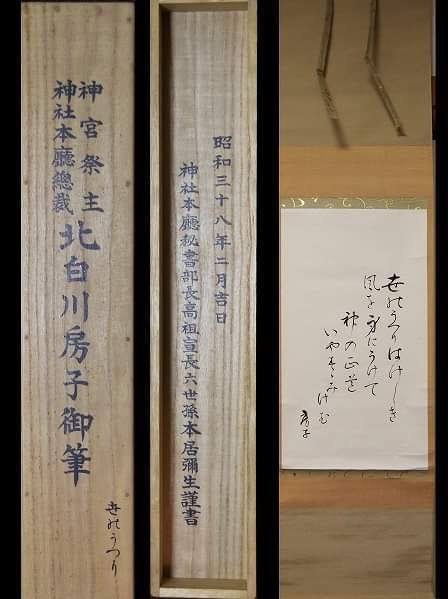 神宮祭主
神社本廳總裁
北白川房子御筆
世のうつり
昭和三十八年二月吉日
神社本廳秘書部長高祖宣長六世孫本居彌生謹書
世のうつりはけしき
風を身にうけて
神の正道
いや
房子